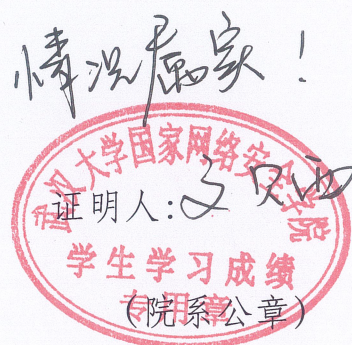 情况属实！
武汉大学国家网络安全学院
证明人:
学生学习成绩
专用章
(院系公章)